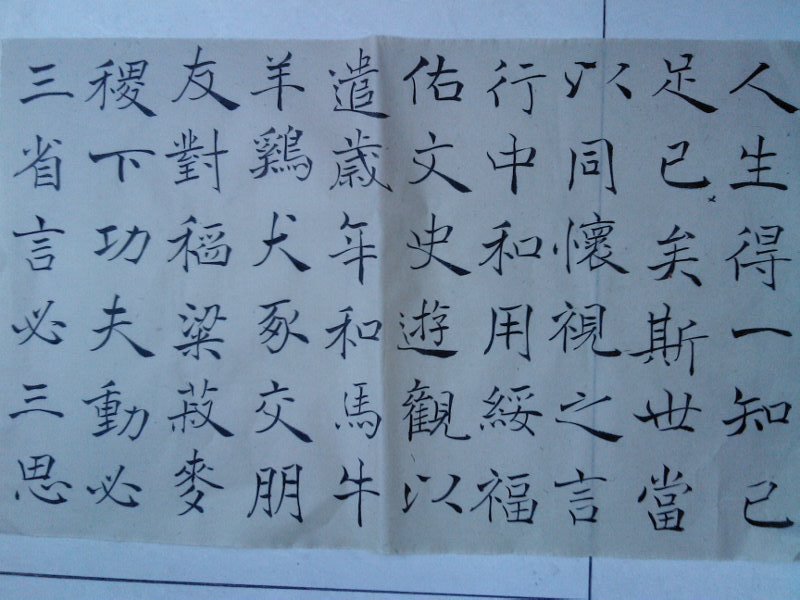 人生得一知己
足已矣斯世當
以同懷視之言
行中和用綏福
佑文史遊觀以
遣歲年和馬牛
羊鷄犬豕交朋
友對稻粱菽麥
稷下功夫動必
三省言必三思